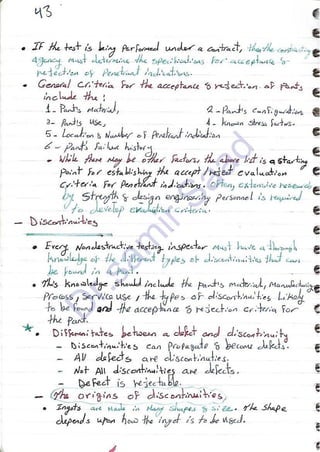 43
• If the test is being performed under a contract, then the contracting
agency must determine the specifications for acceptance &
rejection of Penetrant indications.
• General Criteria For the acceptance & rejection of parts
include the :
1 - Part's Material, 2 - Part's Configuration
3 - Part's Use, 4 - Known Stress factors.
5 - Location & Number of Penetrant indication
6 - Part's Failure history
• While there May be other Factors the above list is a starting
Point for establishing the accept / reject evaluation
Criteria For Penetrant indications. Often, extensive research
by Strength & design engineering Personnel is required
to develop evaluation criteria.
- Discontinuities
• Every Nondestructive testing inspector Must have a through
knowledge of the different types of discontinuities that can
be found in a part.
• This knowledge should include the Part's material, Manufacturing
Process, Service use, the types of discontinuities Likely
to be found and the acceptance & rejection criteria For
the Part.
• Differentiates between a defect and discontinuity
- Discontinuities can Propagate & become defects.
- All defects are discontinuties.
- Not All discontinuities are defects.
- Defect is rejectable.
- The origins of discontinuities
• Ingots are made in Many Shapes & size. The shape
depends upon how the ingot is to be used.